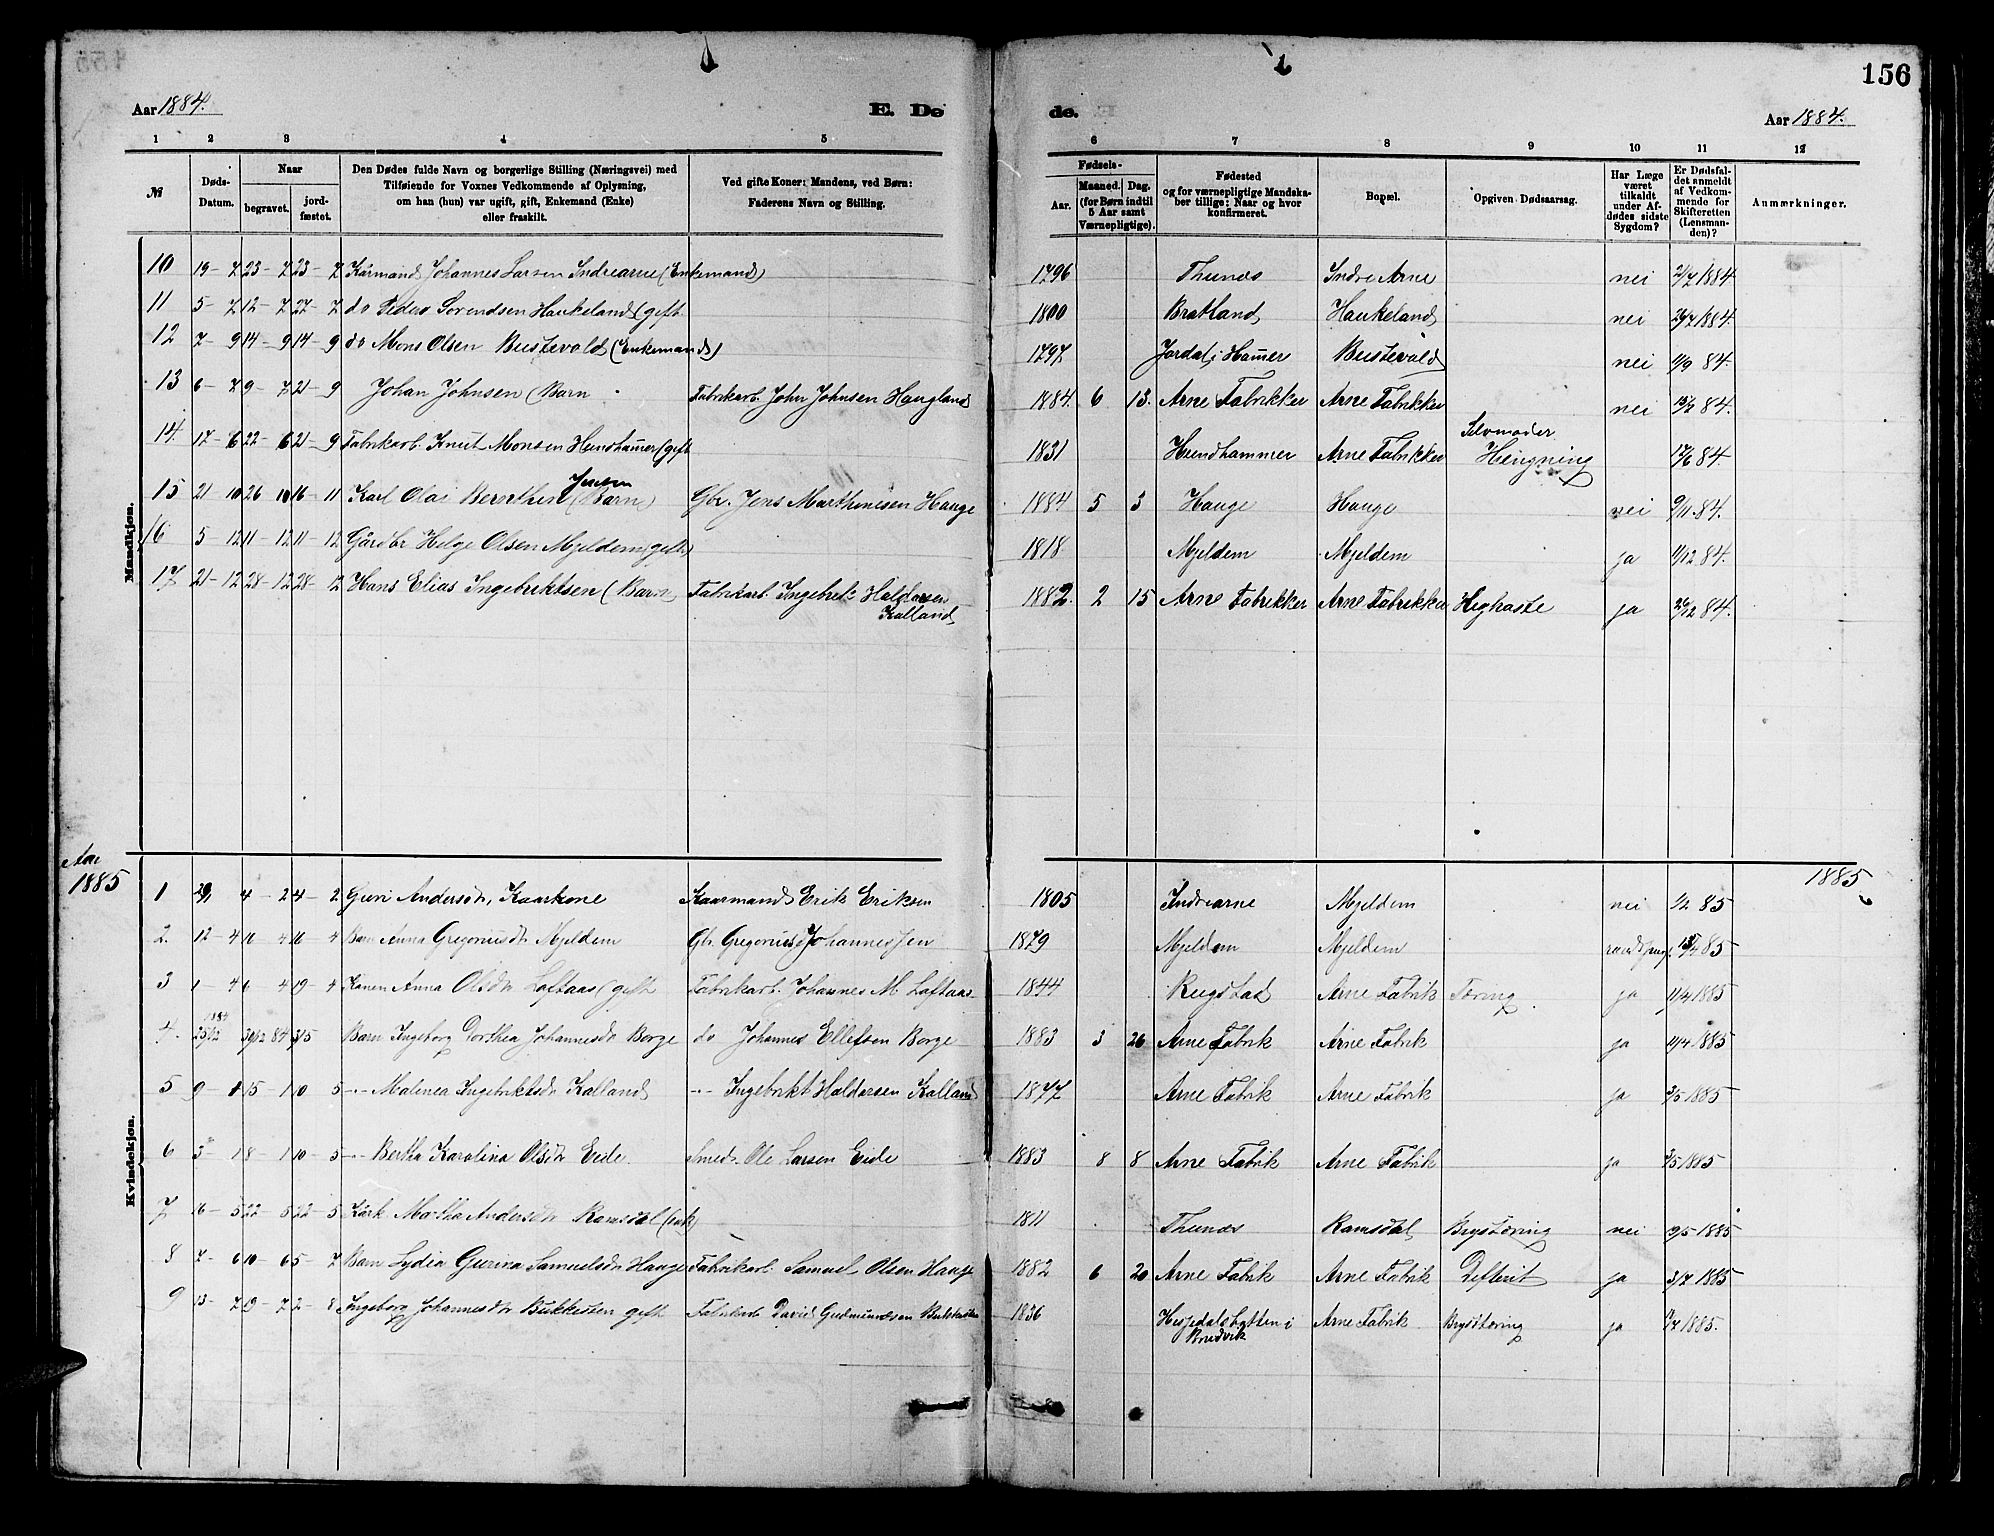 156
Aar 1884.
E. Døde.
Aar 1884.
1 2 3 4 5 6 7 8 9 10 11 12
№
Døds-Datum.
Naar
begravet.
jord-fæstet.
Den Dødes fulde Navn og borgerlige Stilling (Næringsvei) med
Tilføiende for Voxnes Vedkommende af Oplysning,
om han (hun) var ugift, gift, Enkemand (Enke)
eller fraskilt.
Ved gifte Koner: Mandens, ved Børn:
Faderens Navn og Stilling.
Fødsels-
Aar.
Maaned. Dag.
(for Børn indtil
5 Aar samt
Værnepligtige).
Fødested
og for værnepligtige Mandska-
ber tillige: Naar og hvor
konfirmeret.
Bopæl.
Opgiven Dødsaarsag.
Har Læge
været
tilkaldt
under Af-
dødes sidste
Sygdom?
Er Dødsfal-
det anmeldt
af Vedkom-
mende for
Skifteretten
(Lensman-
den)?
Anmærkninger.
Mandkjøn.
10 19-7 23-7 23-7 Kårmand Johannes Larsen Indrearne (Enkemand) 1796 Thunæs Indre Arne nei 21/7 1884
11 5-7 12-7 27-7 do Peder Sørendsen Haukeland (gift 1800 Bratland Haukeland nei 26/7 1884.
12 7-9 14-9 14-9 do Mons Olsen Bustevold (Enkemand) 1797 Jordal i Hamer Bustevold nei 11/9 84.
13 6-7 9-7 21-9 Johan Johnsen (Barn Fabrikarb. John Johnsen Haugland 1884. 6 13. Arne Fabrikker Arne Fabrikker nei 84.
14. 17-6 22-6 21-9 Fabrikarb. Knut Monsen Hundhamer (gift 1831 Hundhammer Arne Fabrikker Selvmoder
Hængning 17/6 84.
15 21-10 26-10 16-11 Karl Olai Bernthen Jensen (Barn) Gbr. Jens Marthinesen Hauge 1884 5 3 Hauge Hauge nei 9/11 84.
16 5-12 11-12 11-12 Gårdbr Helge Olsen Mjeldem (gift) 1818 Mjeldem Mjeldem ja 11/12 84.
17 21-12 28-12 28-12 Hans Elias Ingebriktsen (Barn Fabrikarb. Ingebrit Haldorsen
Kalland 1882. 2 15 Arne Fabrikker Arne Fabrikker Kighoste ja 26/12 84.
Aar
1885
1885
Kvindekjøn.
1 29/1 4-2 4-2 Guri Andersdtr, Kaarkone Kaarmand Erik Eriksen 1805 Indrearne Mjeldem nei 1/2 85
2. 12-4 16-4 16-4 Barn Anna Gregoriusdtr Mjeldem Gbr. Gregorius Johannessen 1879 Mjeldem Mjeldem 85
3 1-4 6-4 19-4 Konen Anna Olsdtr Loftaas (gift Fabrikarb. Johannes M. Loftaas 1844 Rugstad Arne Fabrik Tæring ja 11/4 1885
4. 1884 25/12 30/12 84 3/5 Barn Ingeborg Dorthea Johannesdtr Borge do Johannes Ellefsen Borge 1883 3 26 Arne Fabrik Arne Fabrik ja 11/4 1885
5 9-1 15-1 10-5 -- Malenea Ingebriktsdtr Kalland -- Ingebrikt Haldorsen Kalland 1877 Arne Fabrik Arne Fabrik ja 3/5 1885
6 3-1 8-1 10-5 -- Bertha Karolina Olsdtr Eide Smed. Ole Larsen Eide 1883 8 8 Arne Fabrik Arne Fabrik ja 3/5 1885
7 16-5 22-5 22-5 Kårk Martha Andersdtr Ramsdal (enk) 1811 Thunæs Ramsdal Brysttæring nei 19/5 1885
8 7-6 10-6 5-7 Barn Lydia Gurina Samuelsdtr Hauge Fabrikarb. Samuel Olsen Hauge 1882 6 20 Arne Fabrik Arne Fabrik Defterit ja 3/7 1885
9 13-7 19-7 2-8 Ingeborg Johannesdtr Bukkesten gift Fabrikarb David Gudmundsen Bukkesten 1836 Hospedalsbotten i
Bredvik Arne Fabrik Brysttæring ja 1885.